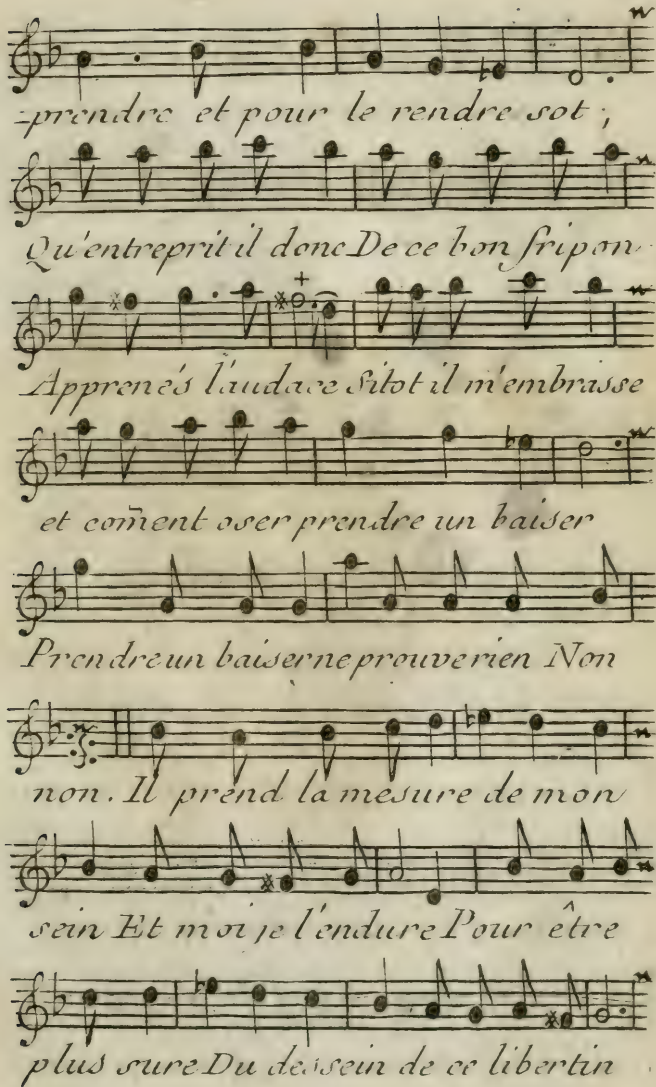 -prendre et pour le rendre sot ;
Qu'entreprit il donc De ce bon fripon
Apprenés l'audace Sitot il m'embrasse
et com̃ent oser prendre un baiser
Prendre un baiser ne prouve rien Non
non. Il prend la mesure de mon
sein Et moi je l'endure Pour être
plus sure Du dessein de ce libertin